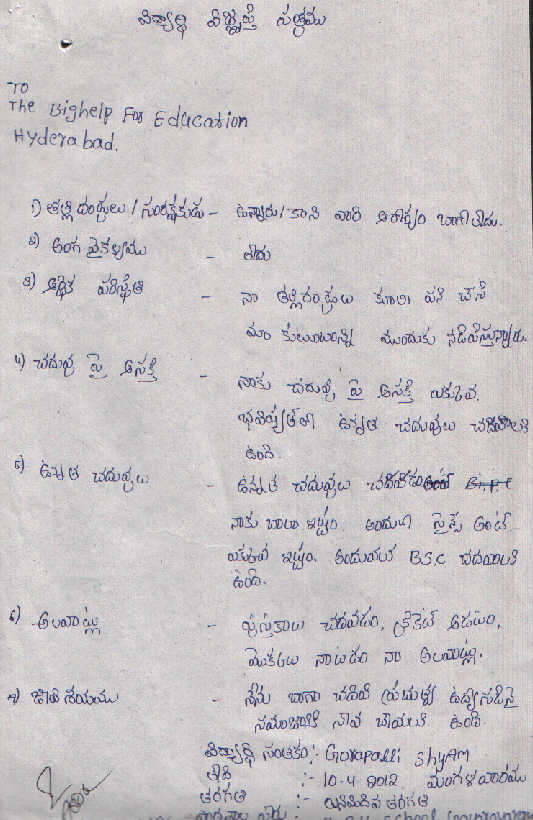 విద్యార్థి విజ్ఞప్తి పత్రము
TO
The Bighelp For Education
Hyderabad.
1) తల్లిదండ్రులు / సంరక్షకుడు - ఉన్నారు / కాని వారి ఆరోగ్యం బాగాలేదు.
2) అంగ వైకల్యము - లేదు
3) ఆర్థిక పరిస్థితి - నా తల్లిదండ్రులు కూలి పని చేసి
మా కుటుంబాన్ని ముందుకు నడిపిస్తున్నారు
4) చదువు పై ఆసక్తి - నాకు చదువు పై ఆసక్తి ఎక్కువ.
భవిష్యత్ లో ఉన్నత చదువులు చదవాలని
ఉంది.
5) ఉన్నత చదువులు - ఉన్నత చదువులు చదవడం
నాకు చాలా ఇష్టం. అందులో సైన్స్ అంటే
ఎక్కువ ఇష్టం. అందువలన B.S.C చదవాలని
ఉంది.
6) అలవాట్లు - పుస్తకాలు చదవడం, క్రికెట్ ఆడటం,
మొక్కలు నాటడం నా అలవాట్లు.
7) - నేను బాగా చదివి ప్రభుత్వ ఉద్యోగినై
సమాజానికి సేవ చేయాలని ఉంది.
విద్యార్థి సంతకం :- Gorapalli Shyam
తేది :- 10-4-2012 మంగళవారము
తరగతి :- ఎనిమిదవ తరగతి